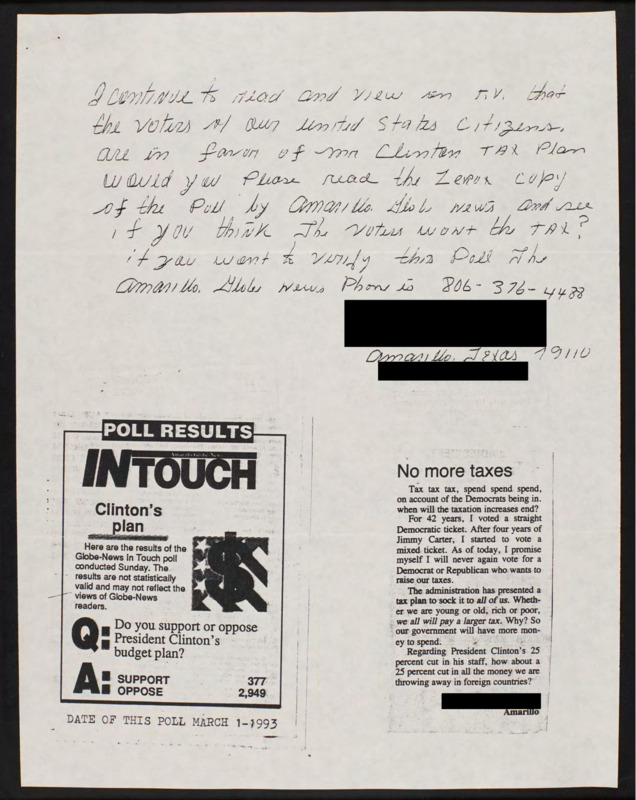 I continue to read and view on T.V. that
the voters of our united States Citizens.
are in favor of mr Clinton TAX Plan
would you Please read the Zerox copy
of the Poll by Amarillo. Globe news and see
if you think The voters want the TAX?
if you want to verify this Poll The
Amarillo. Globe news Phone is 806-376-4488
Amarillo. Texas 79110
POLL RESULTS
INTOUCH
Clinton's
plan
Here are the results of the
Globe-News In Touch poll
conducted Sunday. The
results are not statistically
valid and may not reflect the
views of Globe-News
readers.
Q: Do you support or oppose
President Clinton's
budget plan?
A: SUPPORT 377
OPPOSE 2,949
DATE OF THIS POLL MARCH 1-1993
No more taxes
Tax tax tax, spend spend spend,
on account of the Democrats being in.
when will the taxation increases end?
For 42 years, I voted a straight
Democratic ticket. After four years of
Jimmy Carter, I started to vote a
mixed ticket. As of today, I promise
myself I will never again vote for a
Democrat or Republican who wants to
raise our taxes.
The administration has presented a
tax plan to sock it to all of us. Wheth-
er we are young or old, rich or poor,
we all will pay a larger tax. Why? So
our government will have more mon-
ey to spend.
Regarding President Clinton's 25
percent cut in his staff, how about a
25 percent cut in all the money we are
throwing away in foreign countries?
Amarillo